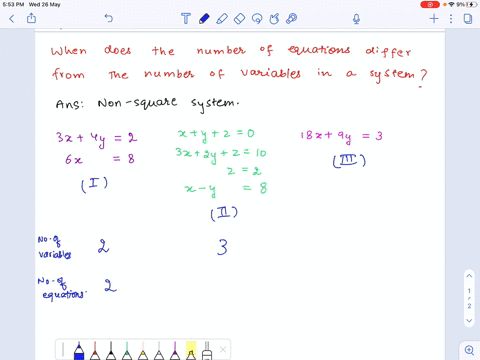 5:53 PM Wed 26 May
9%
When does the number of equations differ
from the number of variables in a system?
Ans: Non-square system.
3x + 4y = 2
6x = 8
(I)
x + y + z = 0
3x + 2y + z = 10
z = 2
x - y = 8
(II)
18x + 9y = 3
(III)
No. of variables 2 3
No. of equations 2
1
2